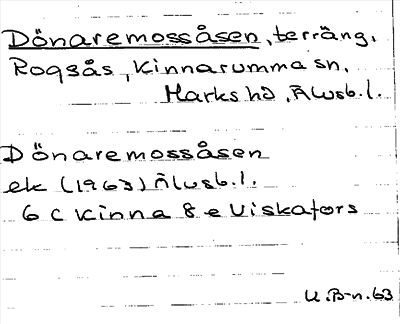 Dönaremossåsen, terräng,
Rogsås, Kinnarumma sn,
Marks hd, Älvsb.l.
Dönaremossåsen
ek (1963) Älvsb.l.
6 C Kinna 8 e Viskafors
U.B-n.63